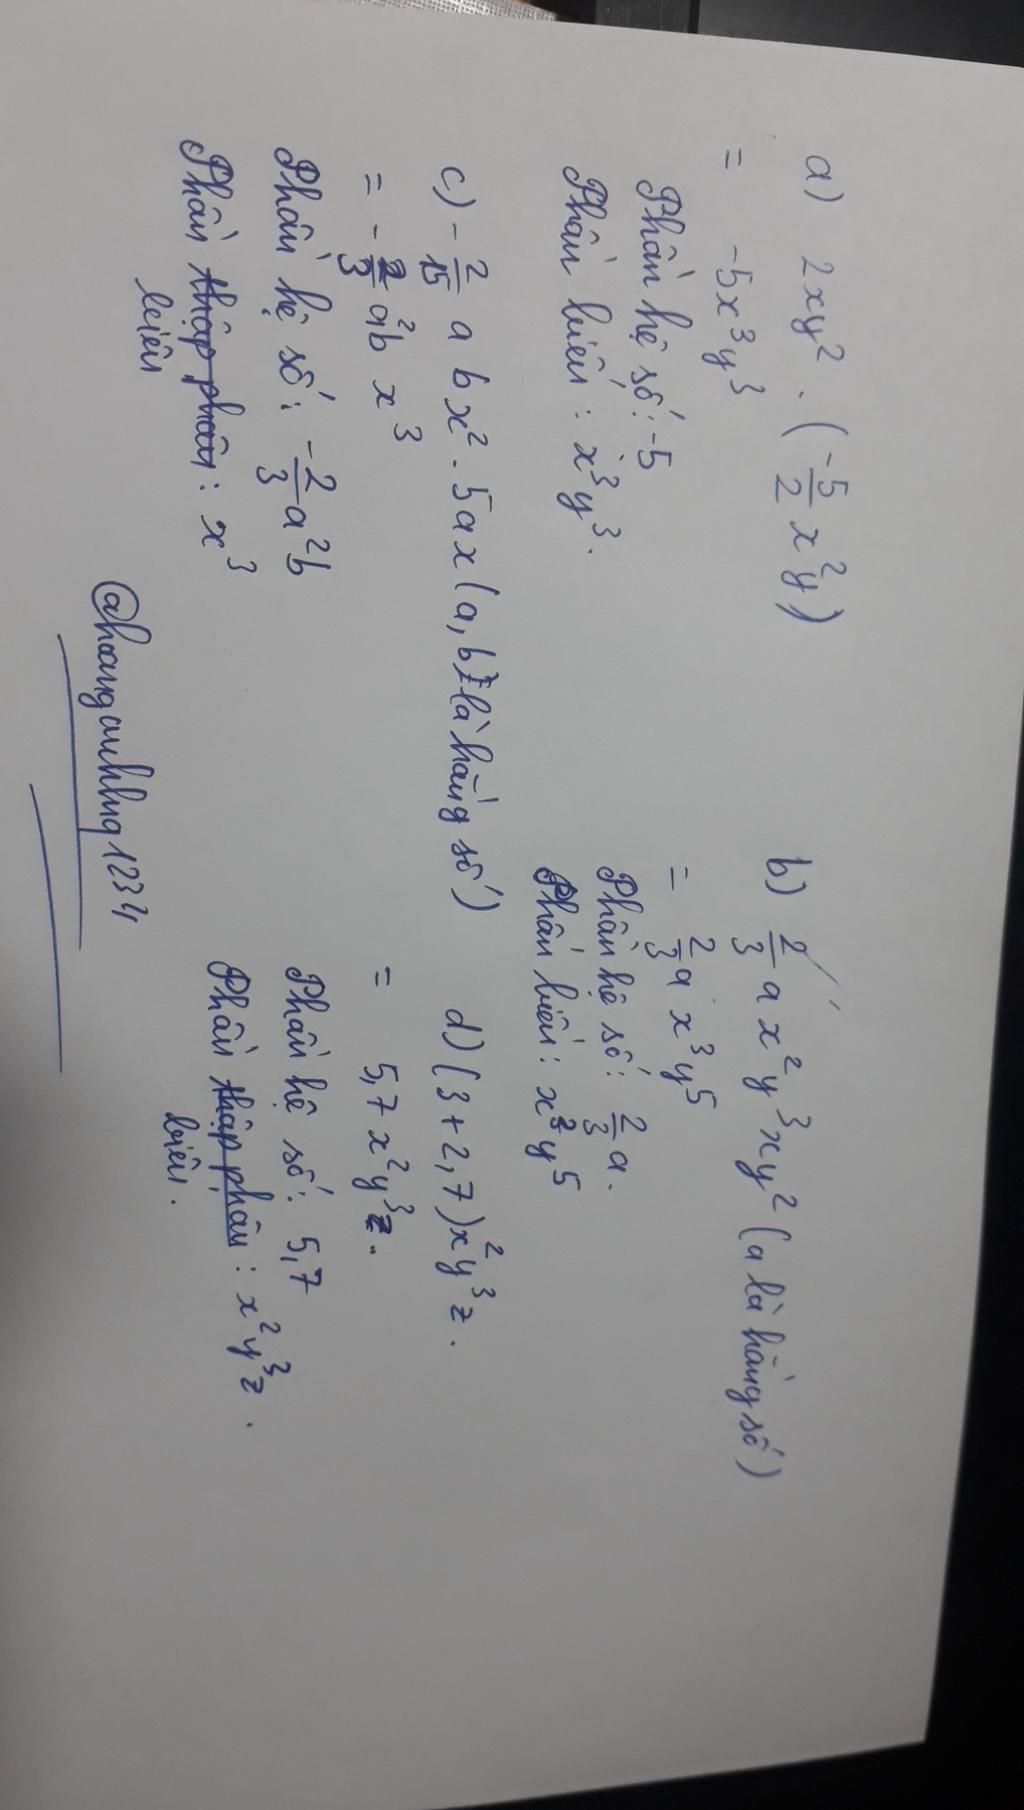 a) 2xy² . (-5/2 x²y)
= -5x³y³
Phần hệ số: -5
Phần biến: x³y³.
b) 2/3 ax²y³xy² (a là hằng số)
= 2/3 a x³y⁵
Phần hệ số: 2/3 a.
Phần biến: x³y⁵
c) -2/15 abx² . 5ax (a, b là hằng số)
= -2/3 a²b x³
Phần hệ số: -2/3 a²b
Phần thập phân: x³
biến
d) (3+2,7)x²y³z.
= 5,7x²y³z.
Phần hệ số: 5,7
Phần thập phân: x²y³z.
biến.
@hoanganhnq1234